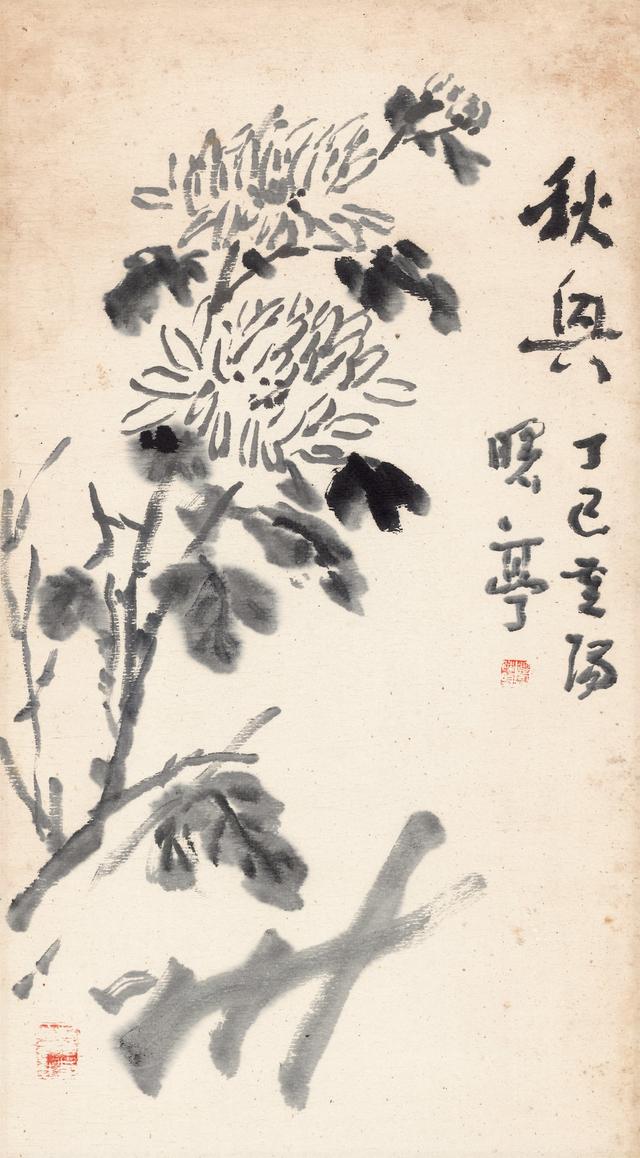 秋興
丁巳重陽
曙亭